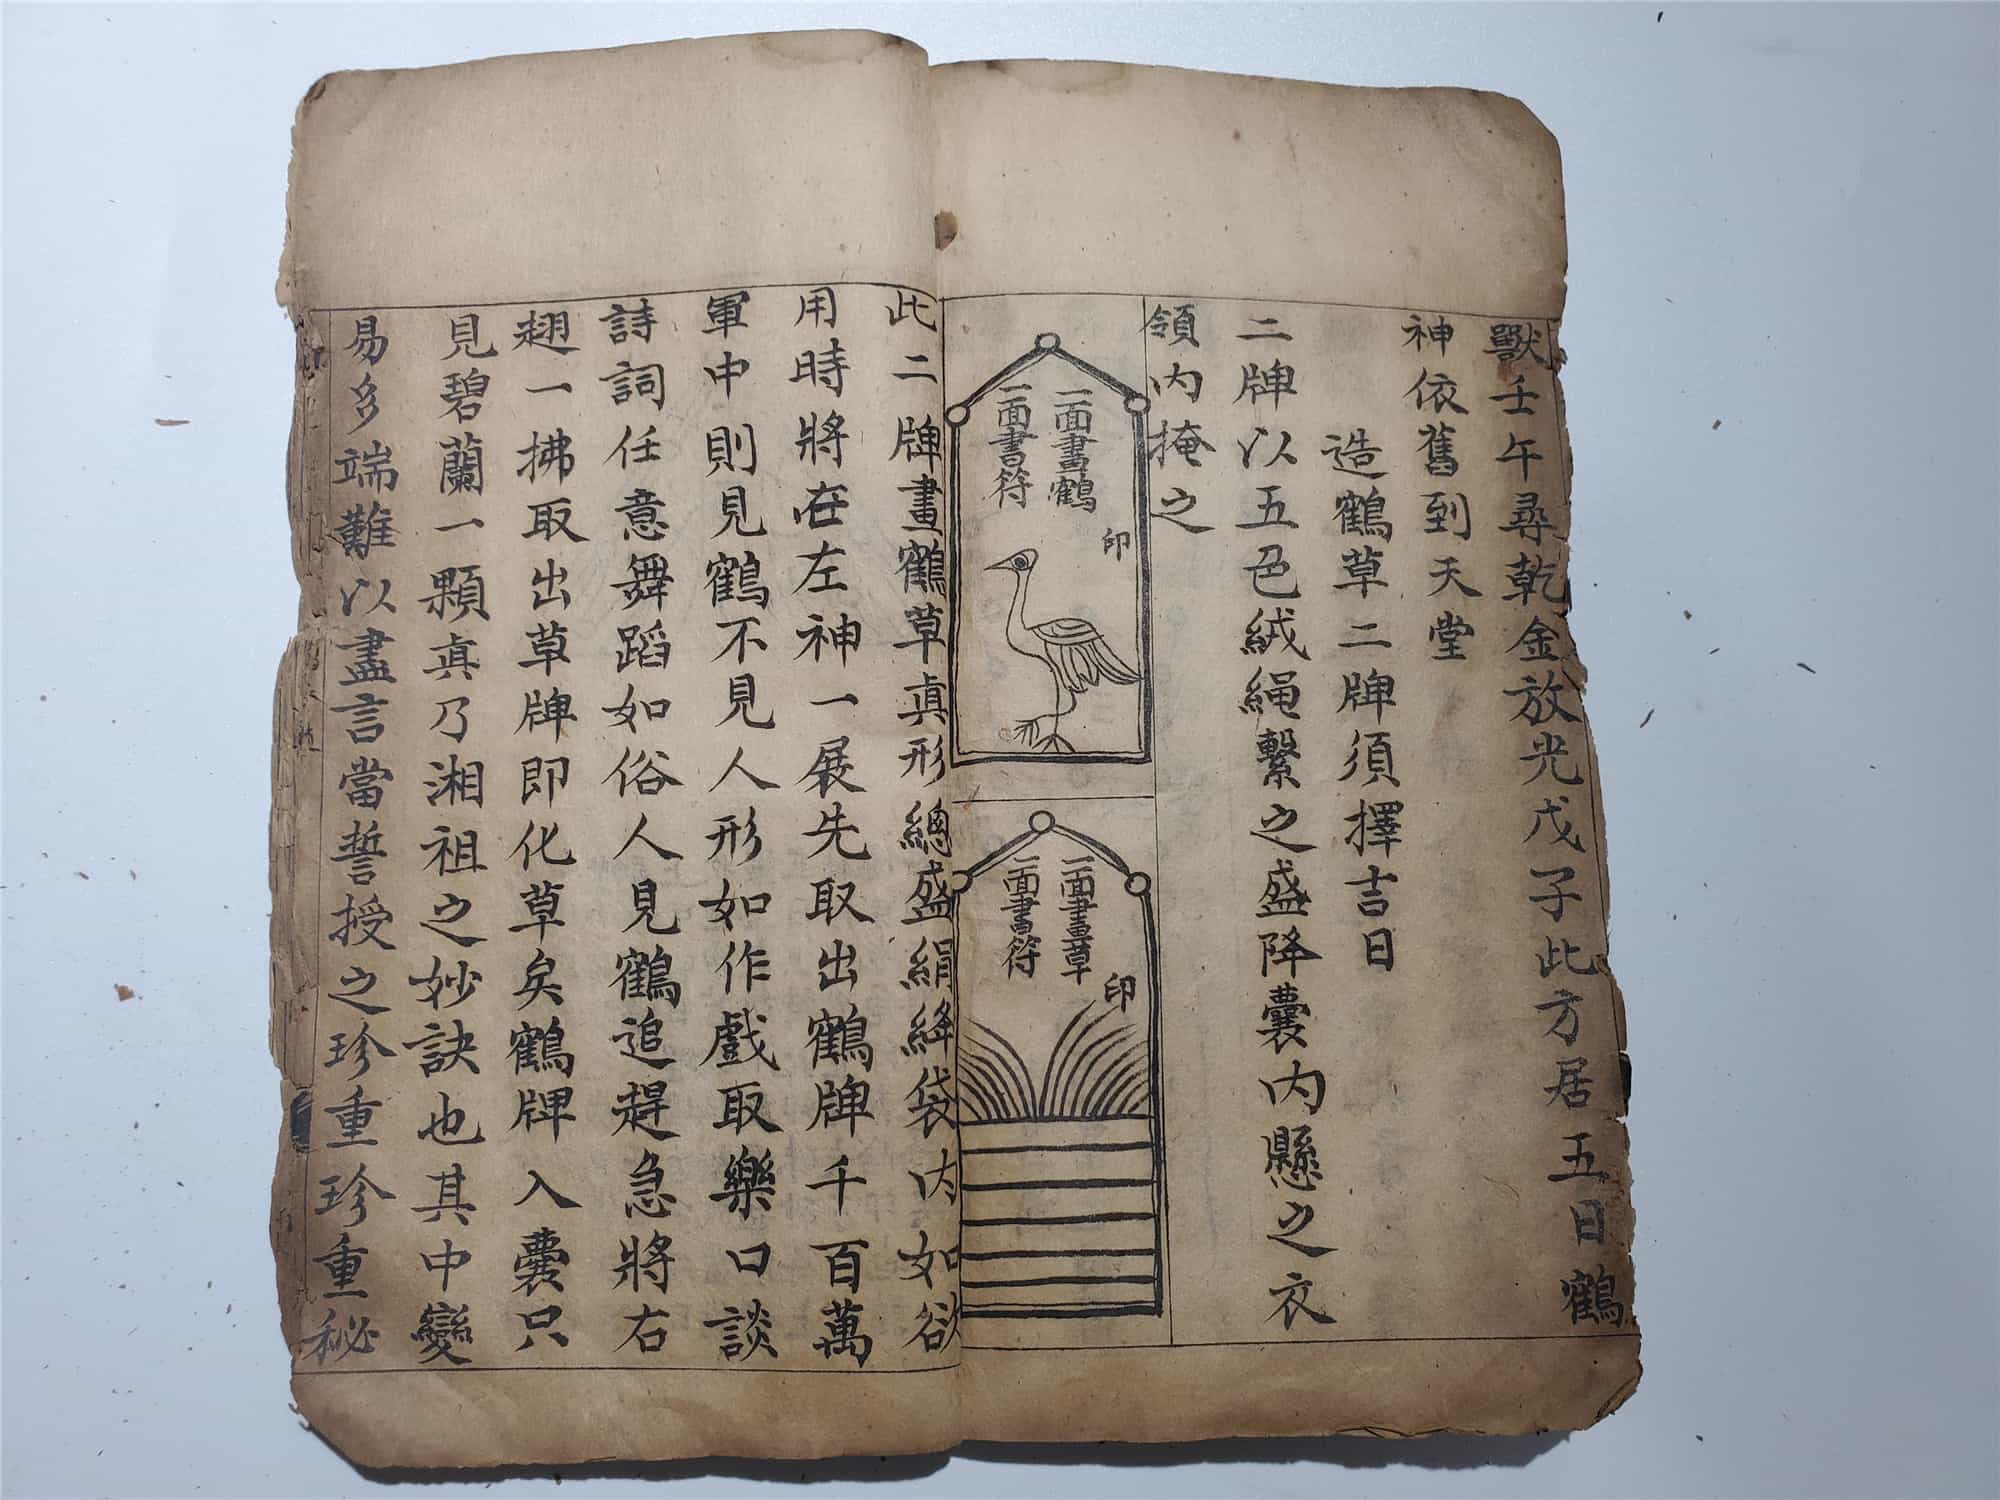 獸壬午尋乾金放光戊子此方居五日鶴
神依舊到天堂
造鶴草二牌須擇吉日
二牌以五色絨繩繫之盛降囊内懸之衣
領内掩之
一面畫鶴
一面書符
印
一面畫草
一面書符
印
此二牌畫鶴草真形總盛絹絳袋内如欲
用時將在左神一展先取出鶴牌千百萬
軍中則見鶴不見人形如作戲取樂口談
詩詞任意舞蹈如俗人見鶴追趕急將右
翅一拂取出草牌即化草矣鶴牌入囊只
見碧蘭一顆真乃湘祖之妙訣也其中變
易多端難以盡言當誓授之珍重珍重秘